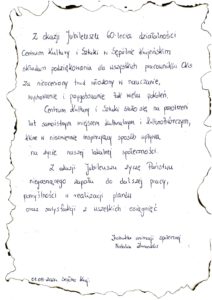 Z okazji Jubileuszu 60-lecia działalności
Centrum Kultury i Sztuki w Sępólnie Krajeńskim
składam podziękowania dla wszystkich pracowników CKiS
za nieoceniony trud włożony w nauczanie,
wychowanie i przygotowanie tak wielu pokoleń.
Centrum Kultury i Sztuki stało się na przestrzeni
lat samoistnym miejscem kulturalnym i kulturotwórczym,
które w niezmiennie inspirujący sposób wpływa
na życie naszej lokalnej społeczności.
Z okazji Jubileuszu życzę Państwu
niegasnącego zapału do dalszej pracy,
pomyślności w realizacji planów
oraz satysfakcji z wszelkich osiągnięć
animacji społecznej
Natalia